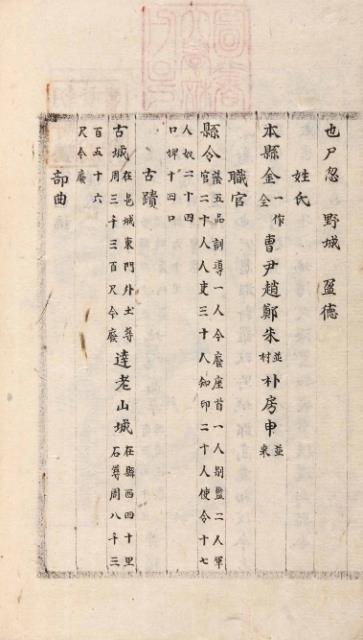 也尸忽 野城 盈德
姓氏
本縣金一作全曹尹趙鄭朱並村朴房申並來
職官
縣令蔭五品訓導一人今廢座首一人別監二人軍官二十人人吏三十人知印二十人使令十七
人奴二十四口婢十四口
古蹟
古城在邑城東門外土築周三千三百尺今廢達老山城在縣西四十里石築周八千三
百五十六尺今廢
部曲